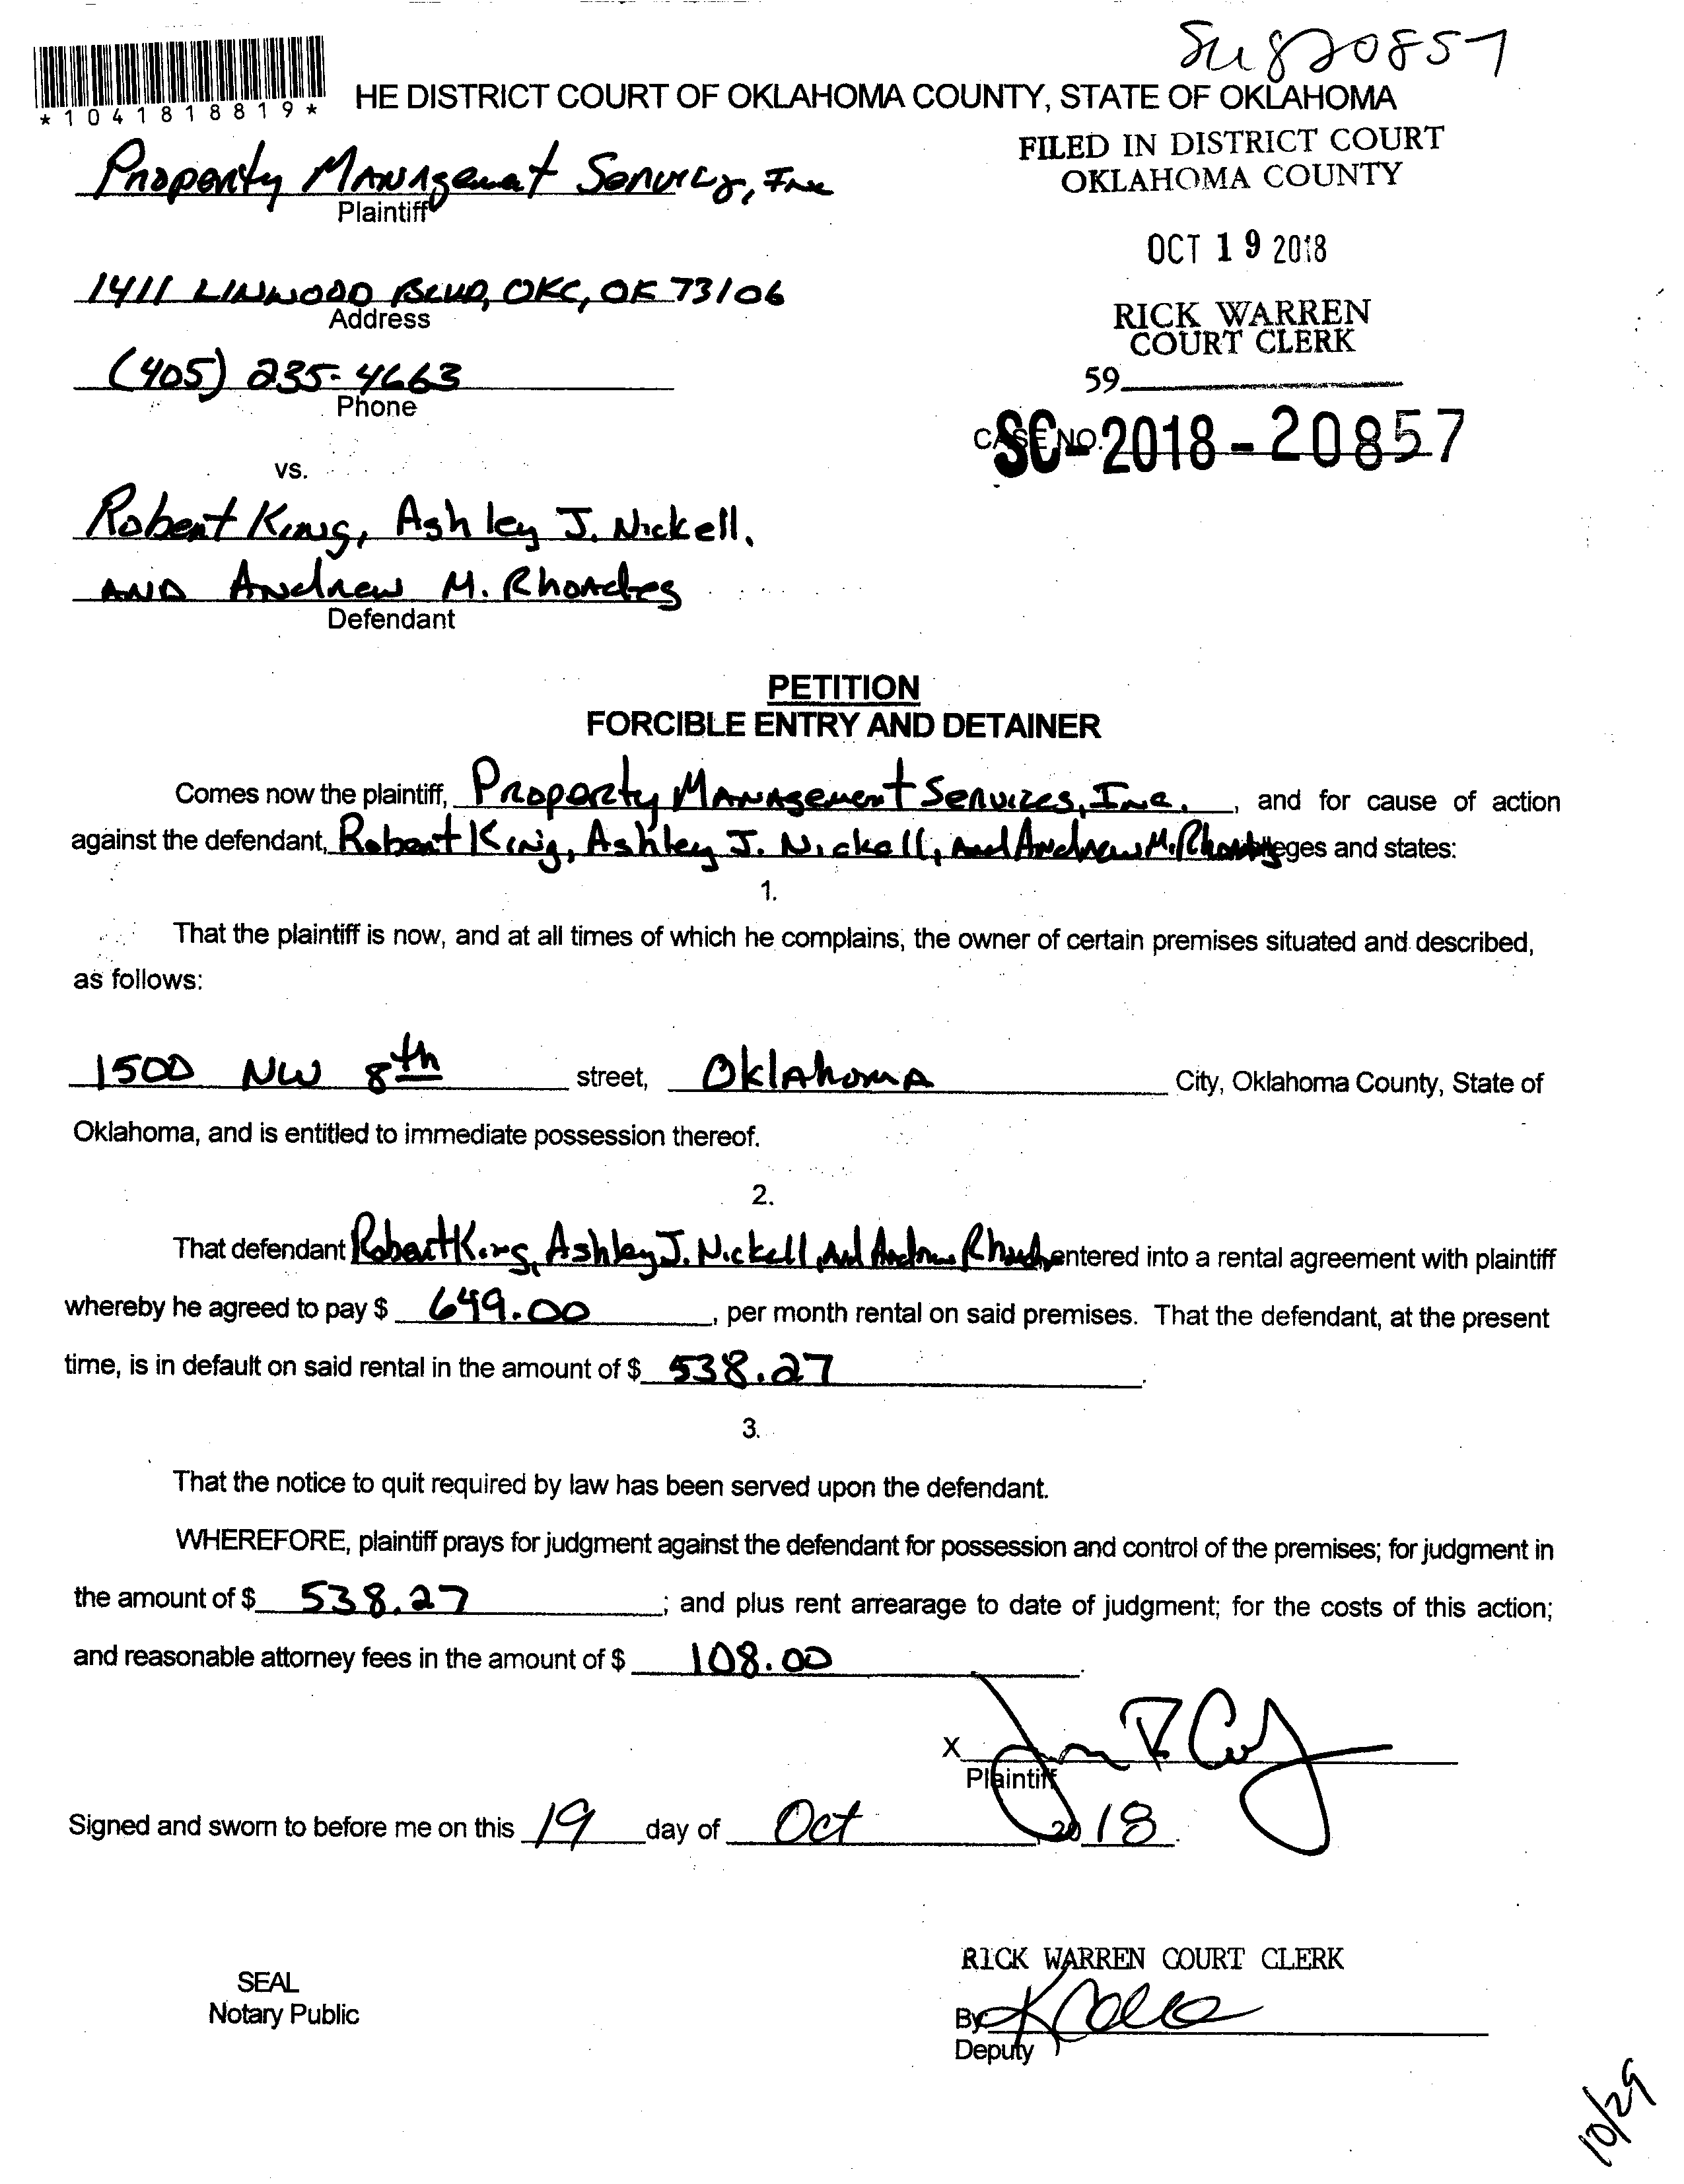 20857
*1041818819*
HE DISTRICT COURT OF OKLAHOMA COUNTY, STATE OF OKLAHOMA
FILED IN DISTRICT COURT
OKLAHOMA COUNTY
Property Management Services, Inc
Plaintiff
OCT 19 2018
1411 LINWOOD BLVD, OKC, OK 73106
Address
RICK WARREN
COURT CLERK
(405) 235-4663
Phone
59
CASE NO. SC-2018-20857
vs.
Robert King, Ashley J. Nickell,
AND Andrew M. Rhoades
Defendant
PETITION
FORCIBLE ENTRY AND DETAINER
Comes now the plaintiff, Property Management Services, Inc. , and for cause of action
against the defendant, Robert King, Ashley J. Nickell, and Andrew M. Rhoades alleges and states:
1.
That the plaintiff is now, and at all times of which he complains, the owner of certain premises situated and described,
as follows:
1500 NW 8th street, Oklahoma City, Oklahoma County, State of
Oklahoma, and is entitled to immediate possession thereof.
2.
That defendant Robert King, Ashley J. Nickell, and Andrew Rhoades entered into a rental agreement with plaintiff
whereby he agreed to pay $ 649.00 , per month rental on said premises. That the defendant, at the present
time, is in default on said rental in the amount of $ 538.27 .
3.
That the notice to quit required by law has been served upon the defendant.
WHEREFORE, plaintiff prays for judgment against the defendant for possession and control of the premises; for judgment in
the amount of $ 538.27 ; and plus rent arrearage to date of judgment; for the costs of this action;
and reasonable attorney fees in the amount of $ 108.00 .
X
Plaintiff
Signed and sworn to before me on this 19 day of Oct , 20 18 .
RICK WARREN COURT CLERK
SEAL
Notary Public
By
Deputy
10/29